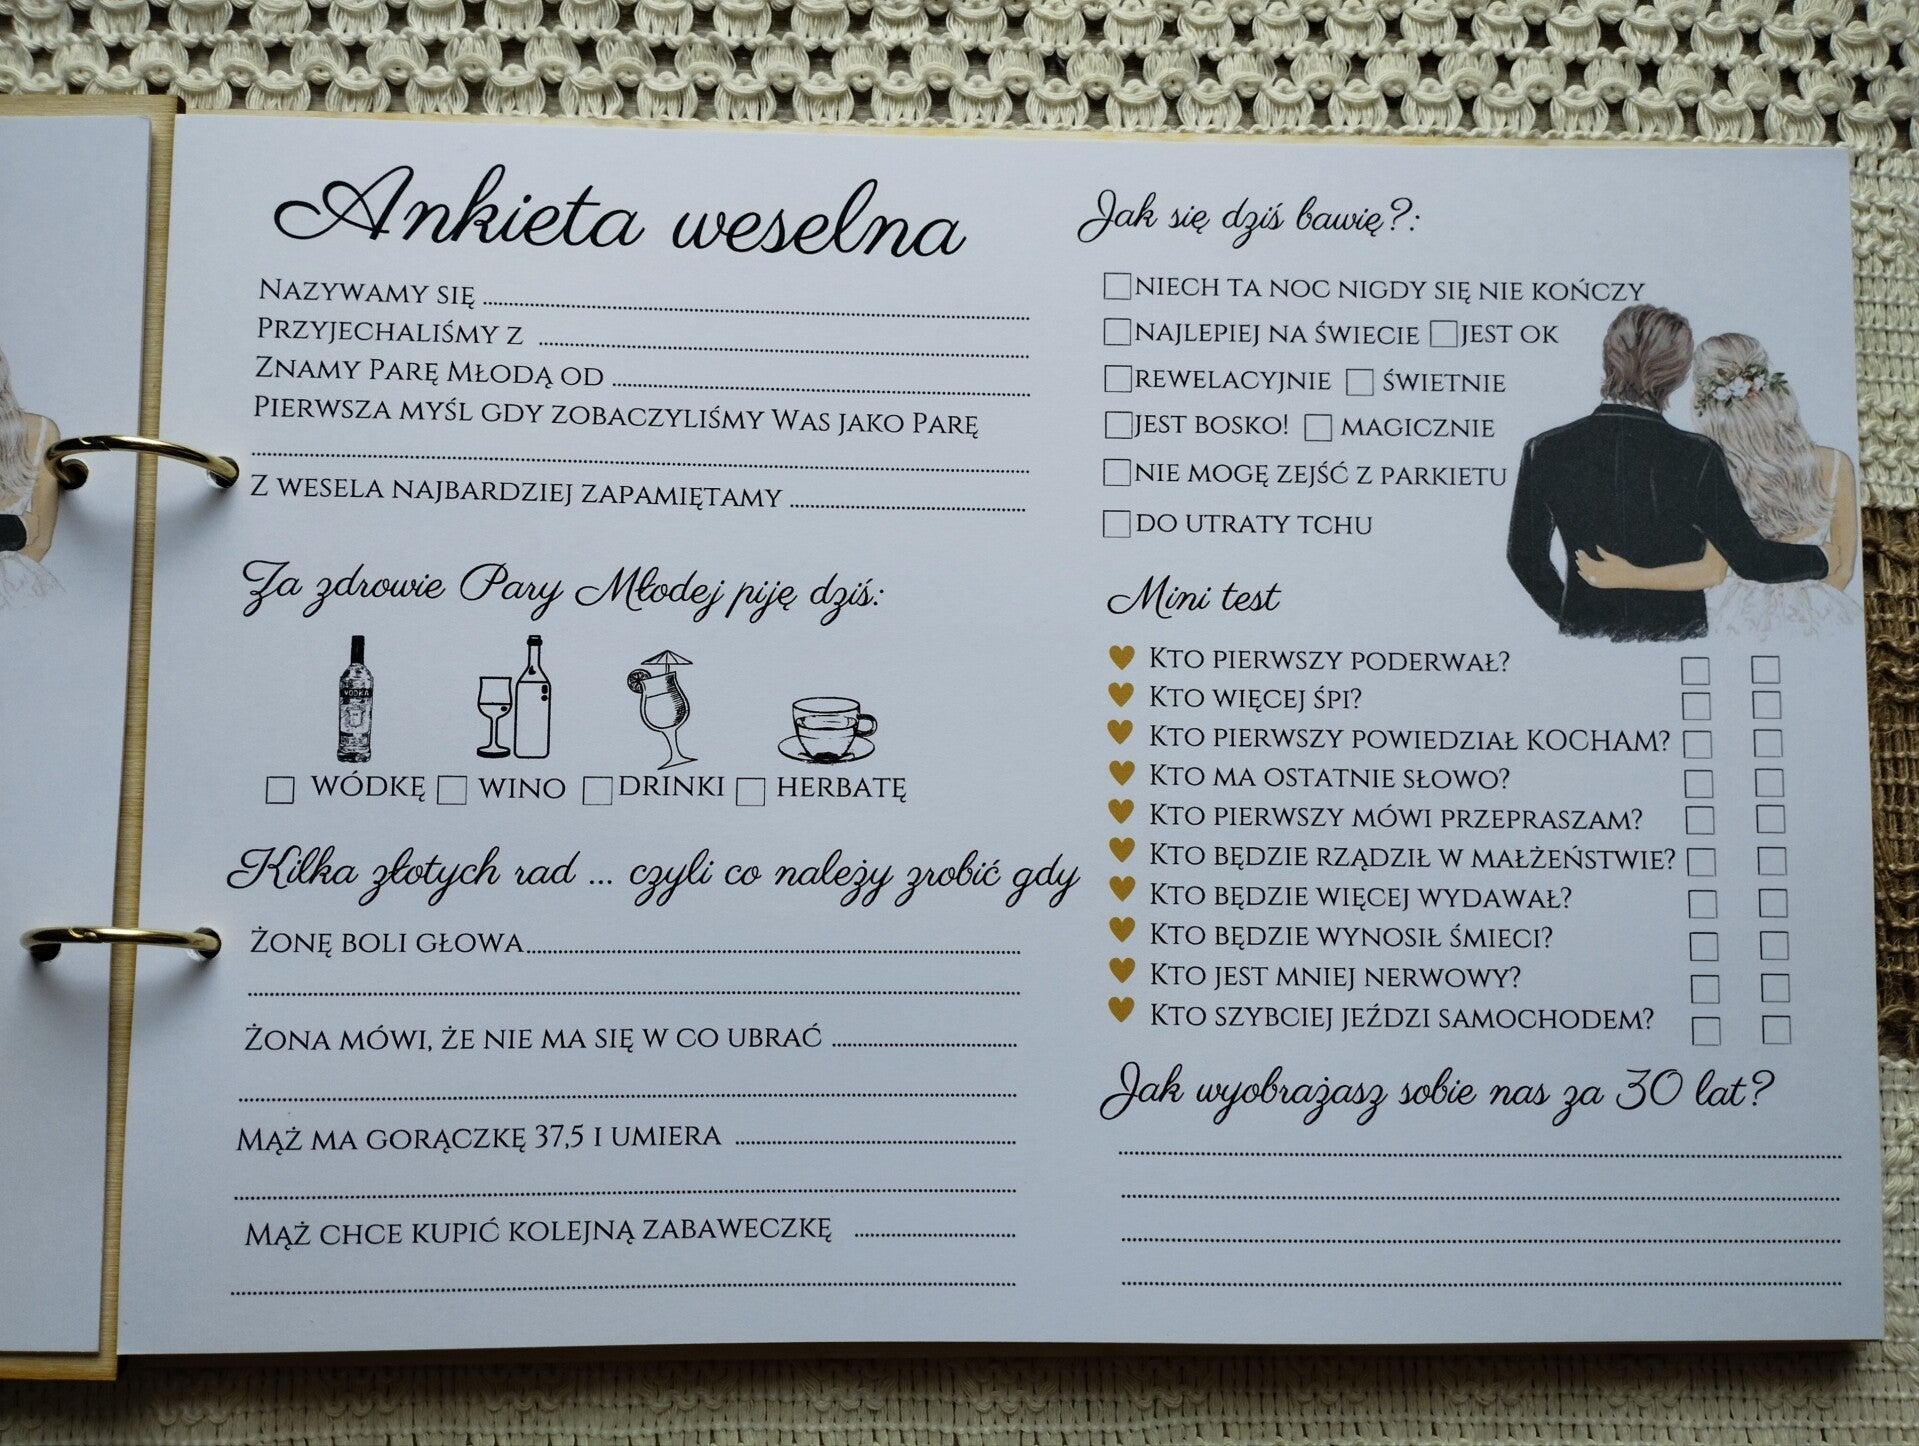 Ankieta weselna
Nazywamy się
Przyjechaliśmy z
Znamy Parę Młodą od
Pierwsza myśl gdy zobaczyliśmy Was jako Parę
Z wesela najbardziej zapamiętamy
Za zdrowie Pary Młodej piję dziś:
VODKA
WÓDKĘ WINO DRINKI HERBATĘ
Kilka złotych rad ... czyli co należy zrobić gdy
Żonę boli głowa
Żona mówi, że nie ma się w co ubrać
Mąż ma gorączkę 37,5 i umiera
Mąż chce kupić kolejną zabaweczkę
Jak się dziś bawię?:
NIECH TA NOC NIGDY SIĘ NIE KOŃCZY
NAJLEPIEJ NA ŚWIECIE JEST OK
REWELACYJNIE ŚWIETNIE
JEST BOSKO! MAGICZNIE
NIE MOGĘ ZEJŚĆ Z PARKIETU
DO UTRATY TCHU
Mini test
Kto pierwszy poderwał?
Kto więcej śpi?
Kto pierwszy powiedział KOCHAM?
Kto ma ostatnie słowo?
Kto pierwszy mówi przepraszam?
Kto będzie rządził w małżeństwie?
Kto będzie więcej wydawał?
Kto będzie wynosił śmieci?
Kto jest mniej nerwowy?
Kto szybciej jeździ samochodem?
Jak wyobrażasz sobie nas za 30 lat?